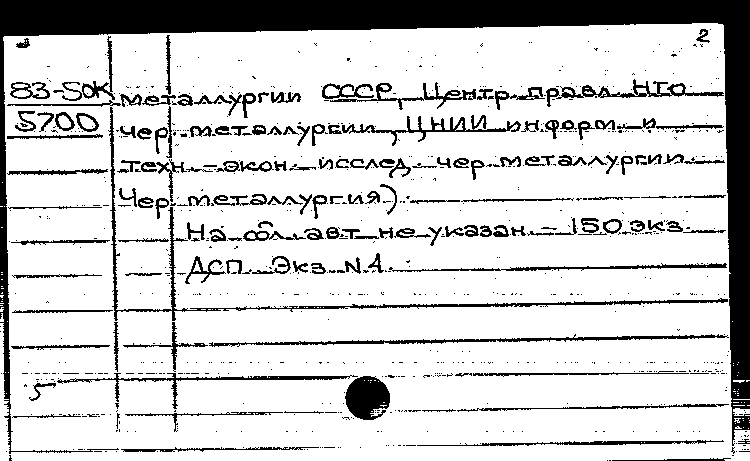 2
83-5ОК металлургии СССР, Центр. правл. НТО
5700 чер. металлургии, ЦНИИ информ. и
техн.-экон. исслед. чер. металлургии.
Чер. металлургия).
На обл. авт. не указан. - 150 экз.
ДСП. Экз. N 4.
5